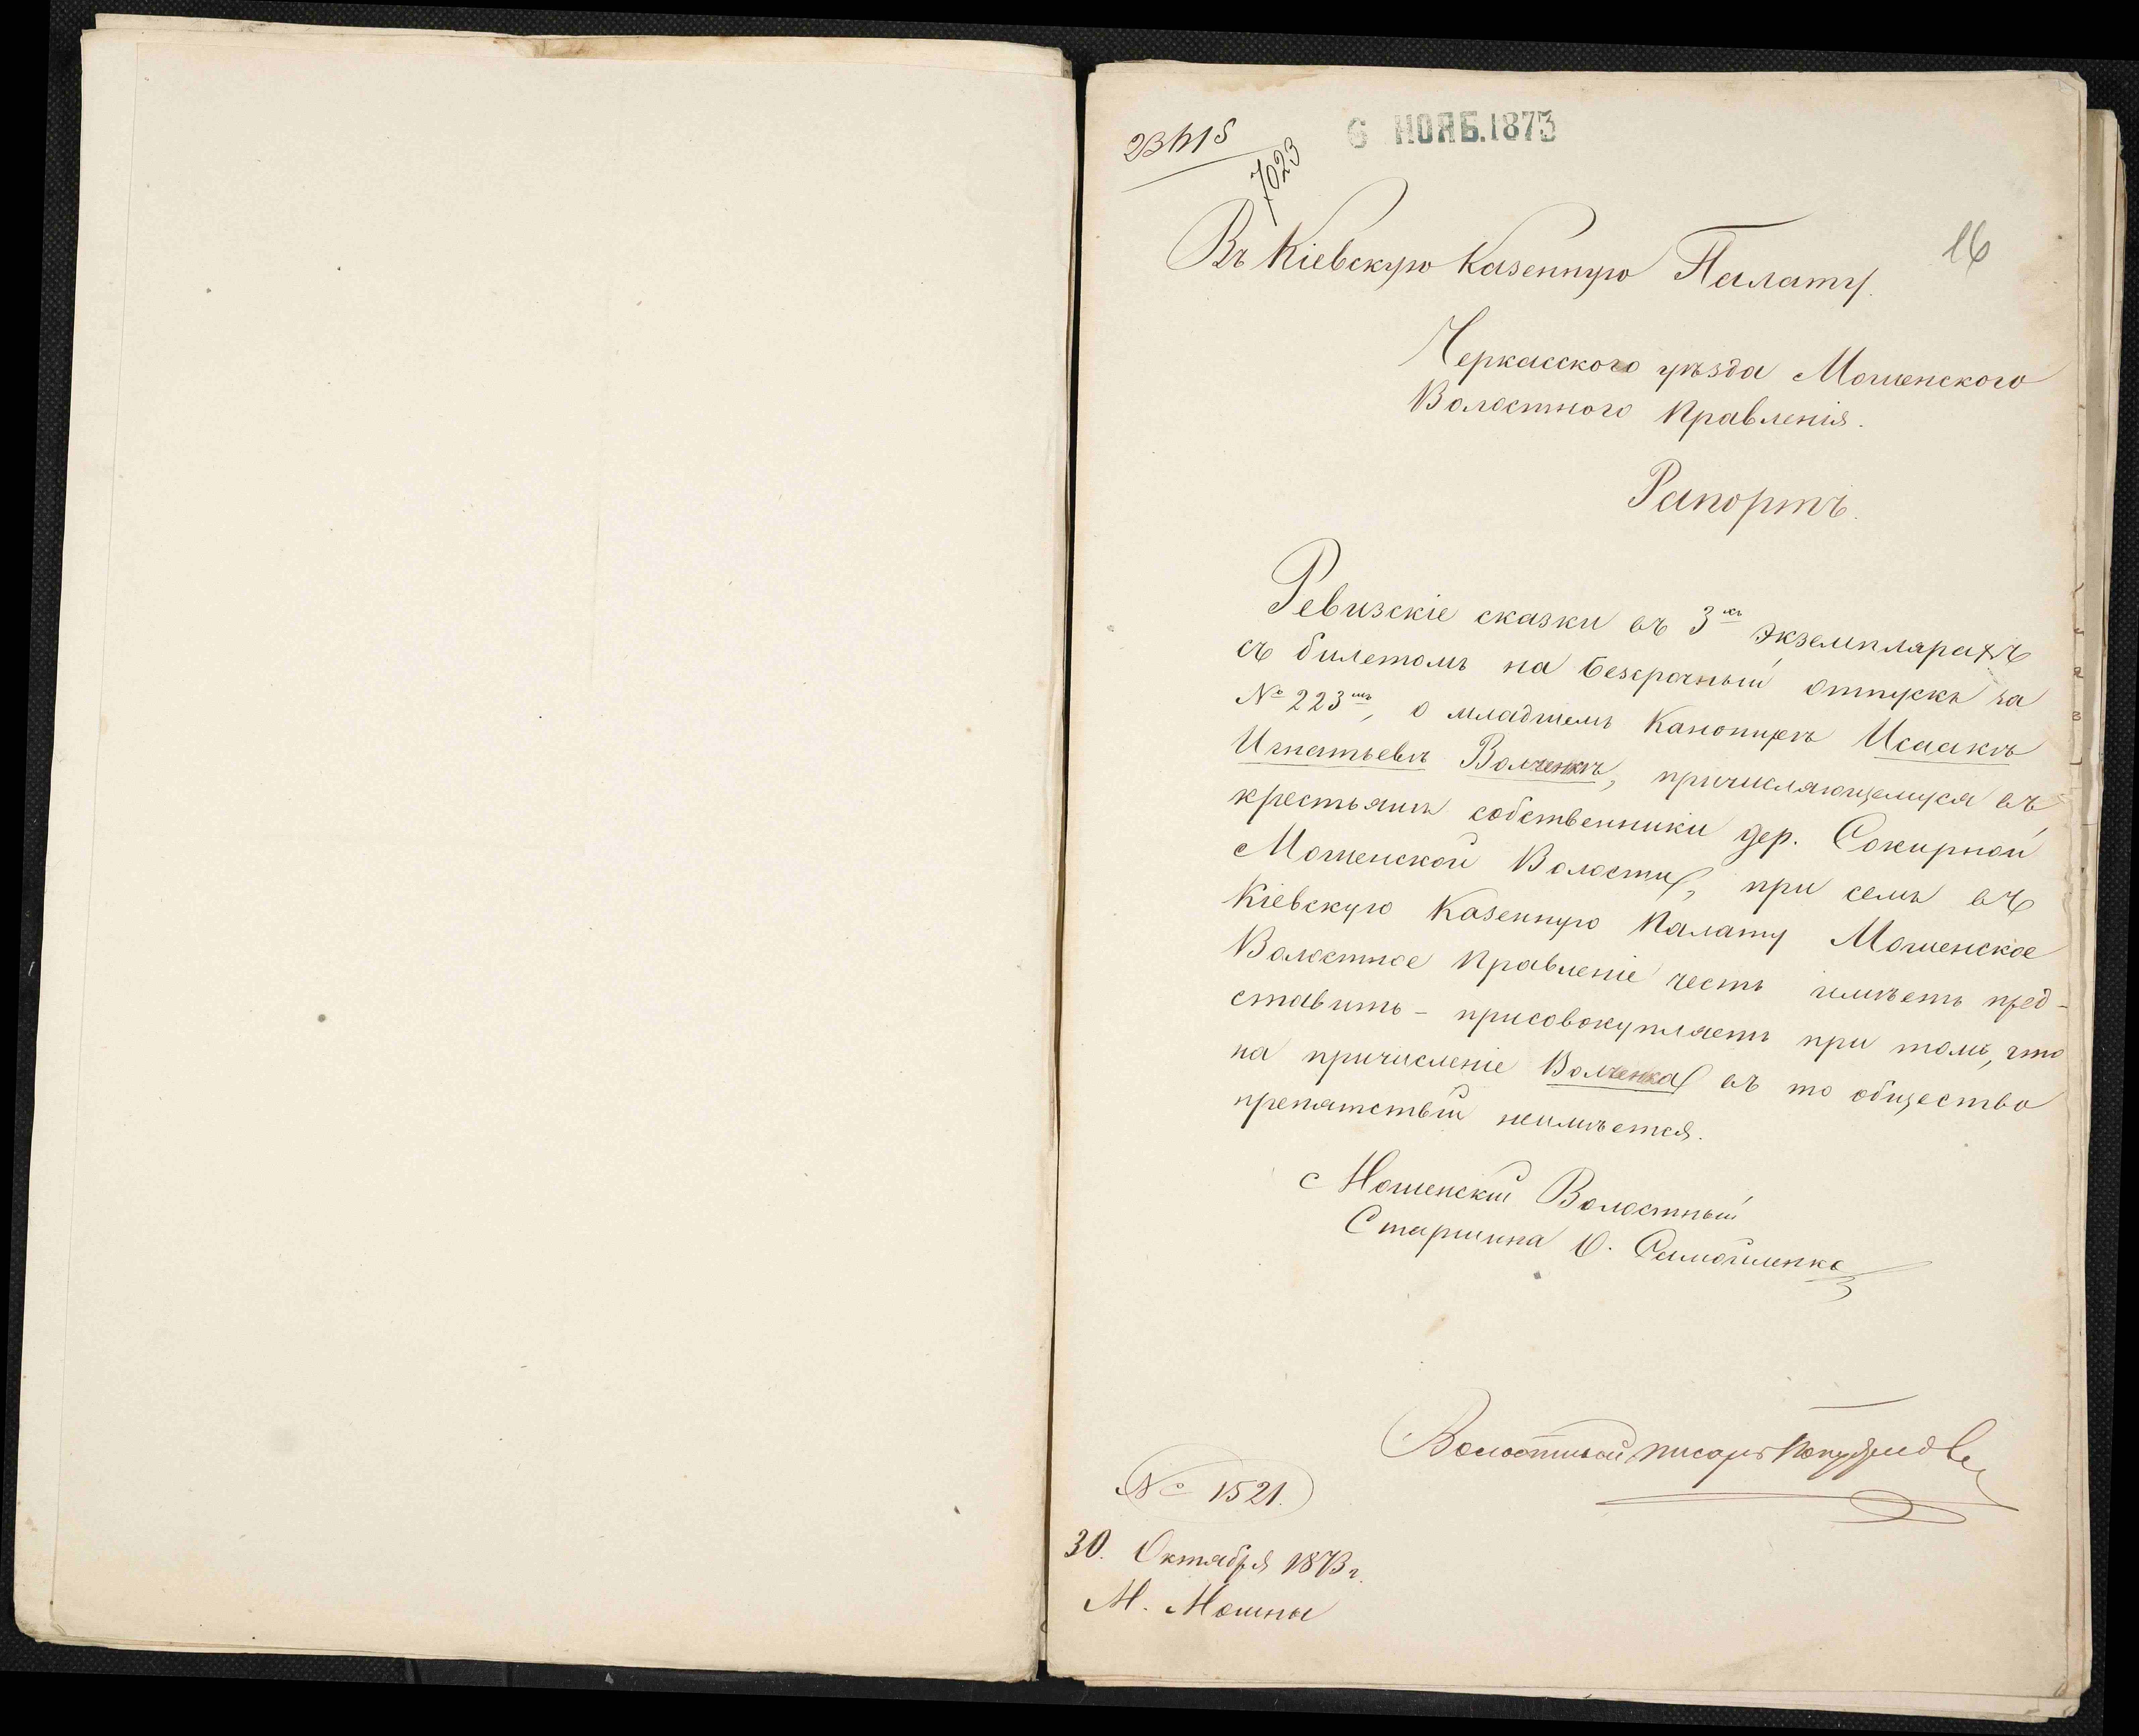 23415
7023
6 НОЯБ.1873
16
Въ Кіевскую Казенную Палату.
Черкасского уѣзда Мошенского
Волостного Правленія.
Рапортъ.
Ревизскіе сказки въ 3хъ экземплярахъ
съ билетомъ на безсрочный отпускъ за
№ 223мъ, о младшемъ Канонирѣ Исаакѣ
Игнатьевѣ Волченкѣ, причисляющемуся въ
крестьянъ собственники дер. Сокирной
Мошенской Волости, при семъ въ
Кіевскую Казенную Палату Мошенское
Волостное Правленіе честь имѣетъ пред-
ставить - присовокупляетъ при томъ, что
на причисленіе Волченка въ то общество
препятствій неимѣется.
Мошенскій Волостный
Старшина О. Самойленко
Волостный писарь
№ 1521.
30. Октября 1873 г.
М. Мошны